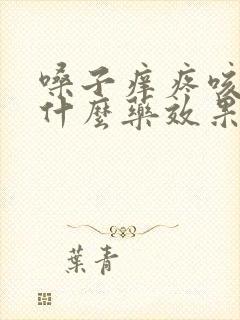 嗓子痒疼咳
什麼藥效果
葉青